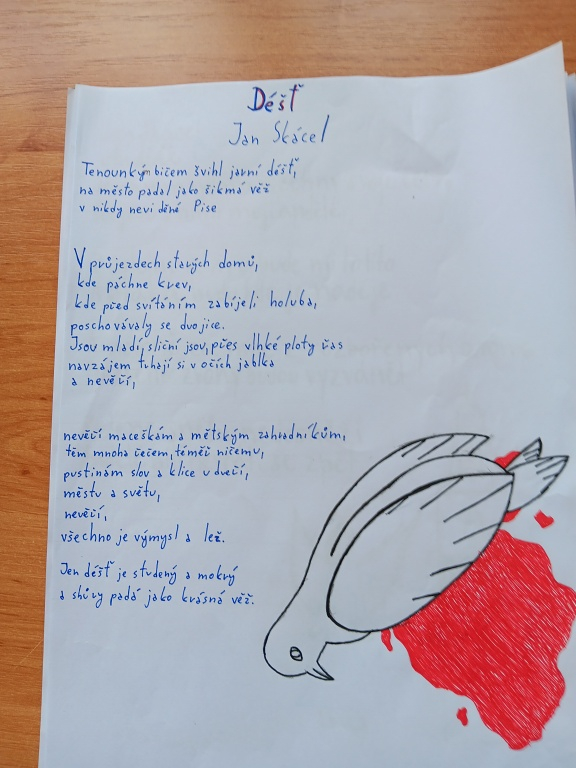 Déšť
Jan Skácel
Tenounkým bičem švihl jarní déšť,
na město padal jako šikmá věž
v nikdy neviděné Pise
V průjezdech starých domů,
kde páchne krev,
kde před svítáním zabíjeli holuba,
poschovávaly se dvojice.
Jsou mladí, sliční jsou, přes vlhké ploty řas
navzájem trhají si v očích jablka
a nevěří,
nevěří maceškám a městským zahradníkům,
těm mnoha čečem, téměř ničemu,
pustinám slov a klice u dveří,
městu a světu,
nevěří,
všechno je výmysl a lež.
Jen déšť je studený a mokrý
a shůry padá jako krásná věž.